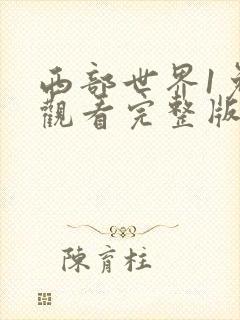 西部世界1免
觀看完整版
陳育柱